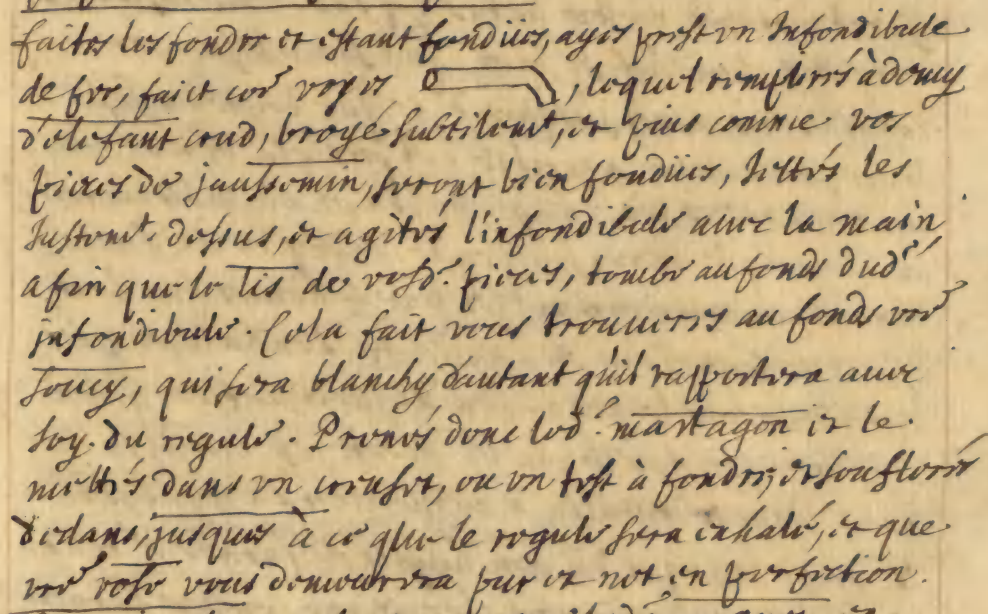 faites les fondre et estant fondües, ayés prest vn Infondibule
de fer, faict coē voyés , lequel remplirés à demy
d'elefant crud, broyé subtilemt, et puis comme vos
pieces de jaussemin, seront bien fondües, Jettés les
Justemt. dessus, et agités l'infondibule auec la main
afin que le lis de vosd. pieces, tombe au fonds dud.
infondibule. Cela fait vous trouueres au fonds vrē
soucy, qui sera blanchy d'autant qu'il rapportera auec
soy. du regule. Prenés donc led. martagon et le
mettés dans vn creuset, ou vn test à fondre, et souflerés
dedans, jusques à ce que le regule sera exhalé, et que
vrē rose vous demeurera pur et net en perfection.